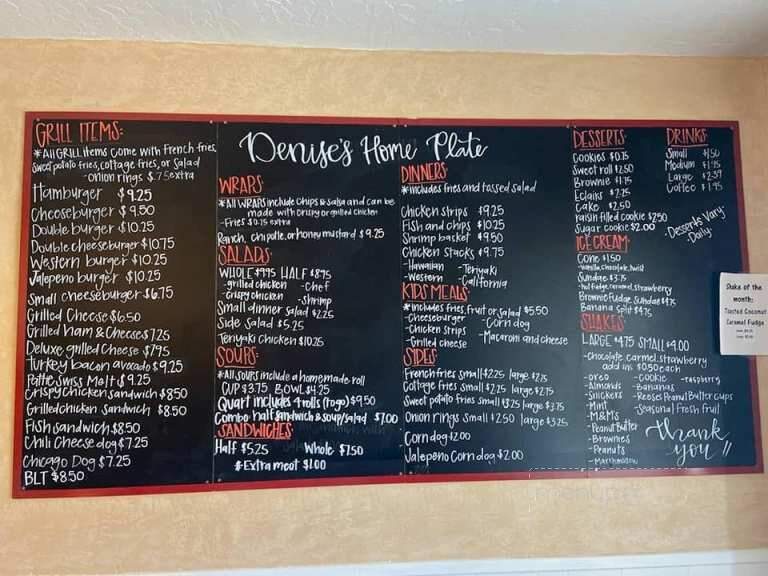 GRILL ITEMS:
*All GRILL Items Come with French fries,
Sweet potato fries, cottage fries, or Salad
-Onion rings $.75 extra
Hamburger $9.25
Cheeseburger $9.50
Double burger $10.25
Double cheeseburger $10.75
Western burger $10.25
Jalapeno burger $10.25
Small cheeseburger $6.75
Grilled Cheese $6.50
Grilled ham & Cheese $7.25
Deluxe grilled Cheese $7.95
Turkey bacon avocado $9.25
Pattie Swiss Melt $9.25
Crispy Chicken Sandwich $8.50
Grilled Chicken Sandwich $8.50
Fish sandwich $8.50
Chili Cheese dog $7.25
Chicago Dog $7.25
BLT $8.50
Denise's Home Plate
WRAPS:
*All WRAPS include Chips & Salsa and can be
made with crispy or grilled chicken
-Fries $0.75 extra
Ranch, chipotle, or honey mustard $9.25
SALADS:
WHOLE $9.95 HALF $8.75
-grilled chicken -Chef
-Crispy chicken -Shrimp
Small dinner salad $2.25
Side Salad $5.25
Teriyaki Chicken $10.25
SOUPS:
*All Soups include a homemade roll
CUP $3.75 BOWL $4.25
Quart includes 4 rolls (togo) $9.50
Combo half sandwich & soup/salad $7.00
SANDWICHES:
Half $5.25 Whole $7.50
*Extra meat $1.00
DINNERS:
*includes fries and tossed salad
Chicken strips $9.25
Fish and chips $10.25
Shrimp basket $9.50
Chicken stacks $9.75
-Hawaiian -Teriyaki
-Western -California
KIDS MEALS:
*includes fries, fruit, or Salad $5.50
-Cheeseburger -Corn dog
-Chicken Strips -Macaroni and cheese
-Grilled cheese
SIDES:
French fries Small $2.25 large $2.75
Cottage fries Small $2.25 large $2.75
Sweet potato fries Small $3.25 large $3.75
Onion rings Small $2.50 large $3.25
Corn dog $2.00
Jalepeno Corn dog $2.00
DESSERTS:
Cookies $0.75
Sweet roll $2.50
Brownie $1.75
Eclairs $2.25
Cake $2.50
raisin filled cookie $2.50
Sugar cookie $2.00
-Desserts Vary-
-Daily-
DRINKS:
Small $1.50
Medium $1.95
Large $2.39
Coffee $1.95
ICE CREAM:
Cone $1.50
-vanilla, chocolate, twist
Sundae $3.75
-hot fudge, caramel, strawberry
Brownie Fudge Sundae $4.75
Banana Split $4.75
SHAKES:
LARGE $4.75 SMALL $4.00
-Chocolate, carmel, strawberry
add ins $0.50 each
-oreo -Cookie -raspberry
-Almonds -Bananas
-Snickers -Reeses Peanut Butter cups
-Mint -Seasonal Fresh fruit
-M&Ms
-Peanut Butter
-Brownies
-Peanuts
-Marshmallow
thank
you!!
Shake of the
month:
Toasted Coconut
Caramel Fudge